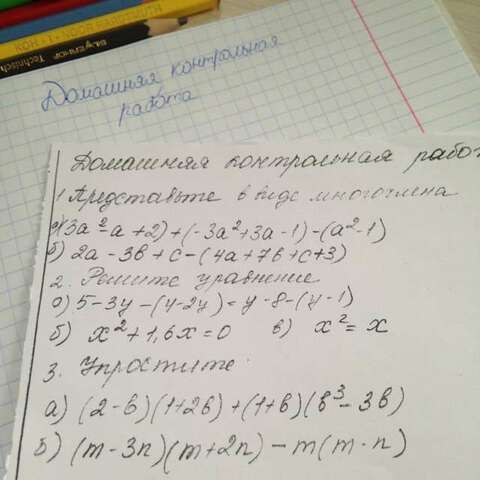 Домашняя контрольная
работа
Домашняя контрольная работ
1 Представьте в виде многочлена
а) (3a² - a + 2) + (-3a² + 3a - 1) - (a² - 1)
б) 2a - 3в + c - (4a + 7в + c + 3)
2. Решите уравнение
а) 5 - 3y - (y - 2y) = y - 8 - (y - 1)
б) x² + 1,6x = 0 в) x² = x
3. Упростите
а) (2 - в)(1 + 2в) + (1 + в)(в³ - 3в)
б) (m - 3n)(m + 2n) - m(m - n)